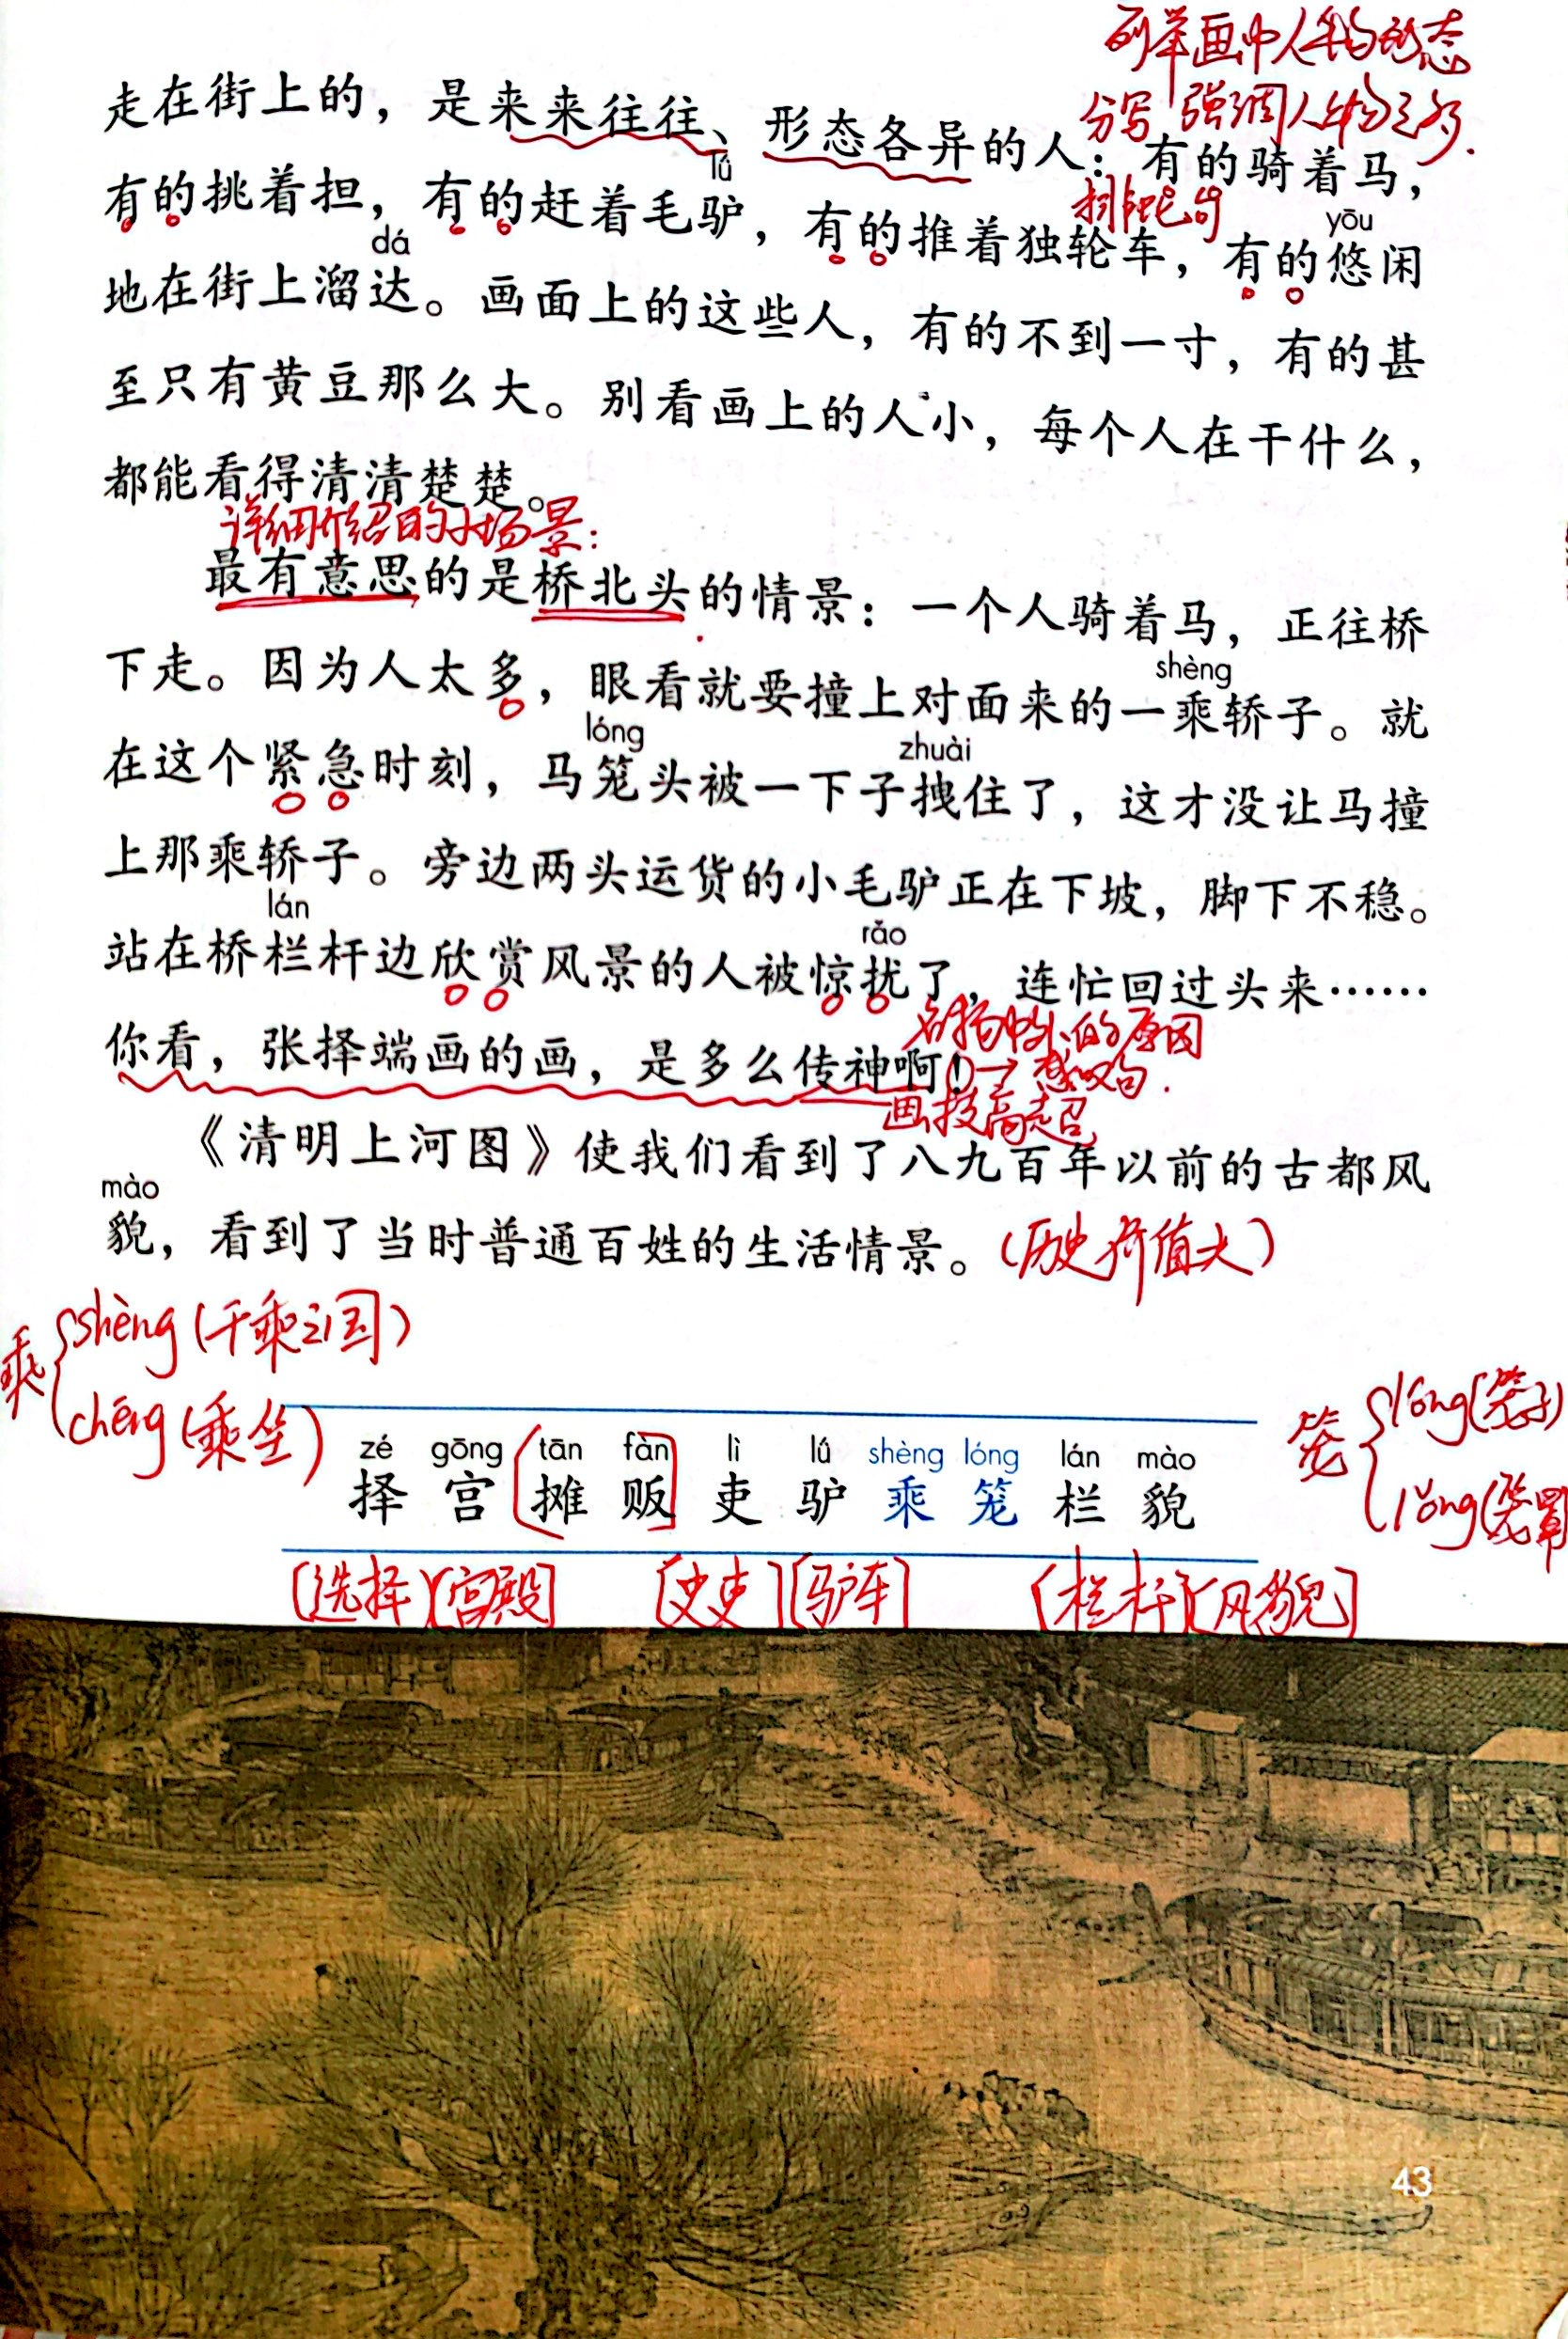 列举画中人物动态
分写 强调人物之多.
走在街上的，是来来往往、形态各异的人：有的骑着马，
排比句
lǘ
有的挑着担，有的赶着毛驴，有的推着独轮车，有的悠闲
dá yōu
地在街上溜达。画面上的这些人，有的不到一寸，有的甚
至只有黄豆那么大。别看画上的人小，每个人在干什么，
都能看得清清楚楚。
详细介绍的小场景：
最有意思的是桥北头的情景：一个人骑着马，正往桥
shèng
下走。因为人太多，眼看就要撞上对面来的一乘轿子。就
lóng zhuài
在这个紧急时刻，马笼头被一下子拽住了，这才没让马撞
上那乘轿子。旁边两头运货的小毛驴正在下坡，脚下不稳。
lán rǎo
站在桥栏杆边欣赏风景的人被惊扰了，连忙回过头来……
名扬中外的原因
你看，张择端画的画，是多么传神啊！→感叹句.
画技高超
《清明上河图》使我们看到了八九百年以前的古都风
mào
貌，看到了当时普通百姓的生活情景。（历史价值大）
乘 shèng（千乘之国）
chéng（乘坐）
笼 lóng（笼子）
lǒng（笼罩
zé gōng tān fàn lì lǘ shèng lóng lán mào
择 宫 摊 贩 吏 驴 乘 笼 栏 貌
[选择][宫殿] [史吏][驴车] [栏杆][风貌]
43